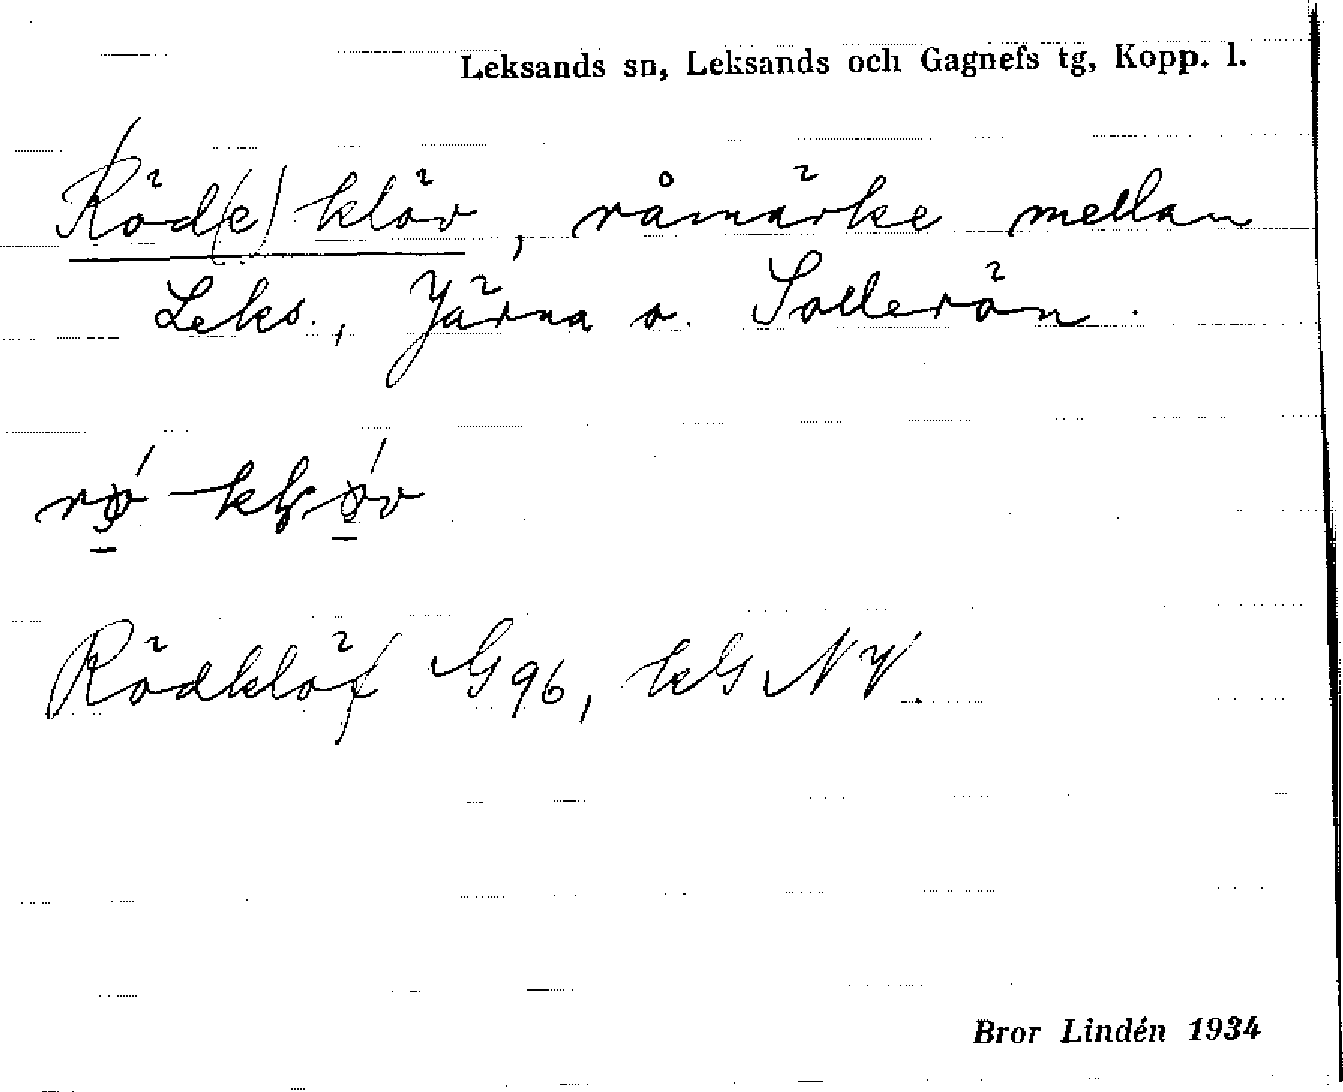 Leksands sn, Leksands och Gagnefs tg, Kopp. l.
Röd(e)klöv, råmärke mellan
Leks., Järna o. Sollerön.
Rödklöf G96, kG NV.
Bror Lindén 1934